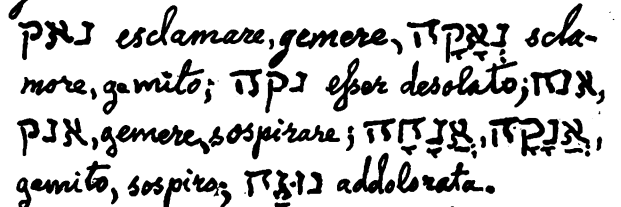 נאק esclamare, gemere, נְאָקָה scla-
more, gemito; נקה esser desolato; אנח,
אנק, gemere, sospirare; אֲנָחָה, אֲנָקָה,
gemito, sospiro; נוּגָה addolorata.